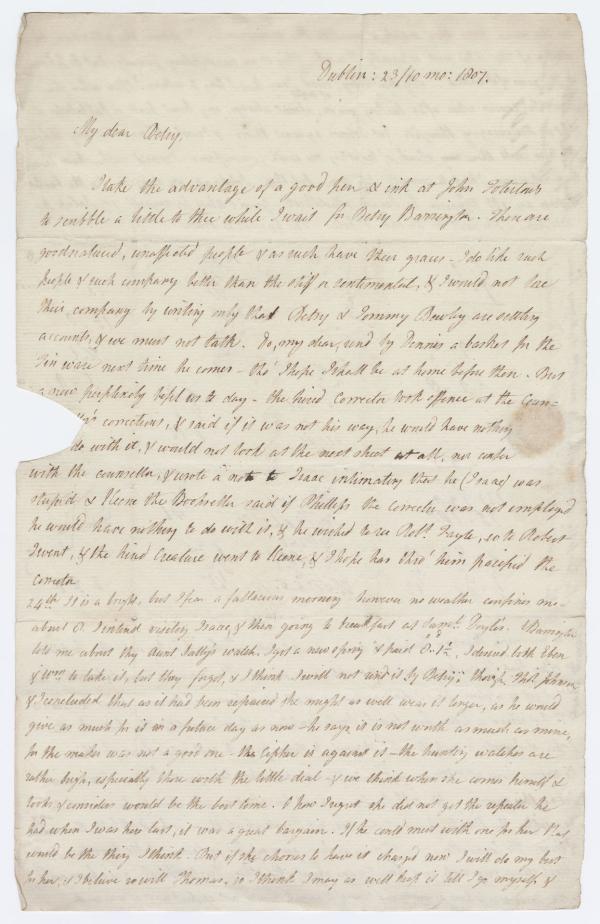 Dublin: 23/10 mo: 1807.
My dear Betsy,
I take the advantage of a good pen & ink at John
to scribble a little to thee while I wait for Betsy Barrington. These are
goodnatured, unaffected people & as such have their graces - I do like such
people & such company better than the stiff or sentimental, & I would not lose
their company by writing only that Betsy & Tommy Bewley are settling
accounts, & we must not talk. Do, my dear, send by Dennis a basket for the
tin ware next time he comes - tho' I hope I shall be at home before then. But
a new perplexity befel us to day - the hired corrector took offence at the Coun-
corrections, & said if it was not his way, he would have nothing
do with it, & would not look at the next sheet at all, nor confer
with the counsellor, & wrote a note to Isaac intimating that he (Isaac) was
stupid & Keene the Bookseller said if Phillips the corrector was not employed
he would have nothing to do with it, & he wished to see Robt. Fayle, so to Robert
I went, & the kind creature went to Keene, & I hope has thro' him pacified the
corrector
24th. It is a bright, but I fear a fallacious morning however no weather confines me
about D. I intend visiting Isaac, & then going to breakfast at Doyle's. Barrington
tells me about thy Aunt Sally's watch. I got a new spring & paid I desired both Eben
& Wm. to take it, but they forgot, & I think I will not send it by Betsy; though Thos. Johnson
& I concluded that as it had been repaired she might as well wear it longer, as he would
give as much for it in a future day as now - he says it is not worth as much as mine,
for the maker was not a good one - the is against it - the hunting watches are
rather high, especially those with the little dial - & we think when she comes herself &
looks & considers would be the best time. O how I regret she did not get the repeater he
had when I was here last, it was a great bargain. If he could meet with one for her that
would be the thing I think. But if she chooses to have it changed now I will do my best
for her, & I believe so will Thomas, so I think I may as well keep it till I go myself &